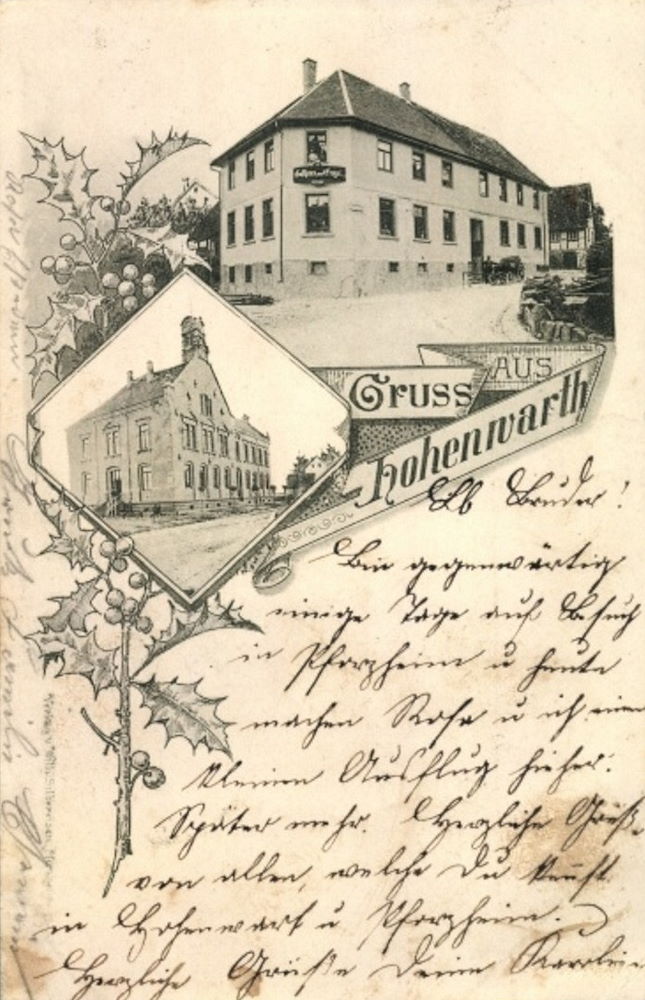 GRUSS AUS
Hohenwarth
Lb Bruder!
Bin gegenwärtig
einige Tage auf Besuch
in Pforzheim u heute
machen Rosa u ich einen
kleinen Ausflug hieher.
Später mehr. Herzliche Grüße
von allen, welche Du kennst
in Hohenwart u Pforzheim.
Herzliche Grüße Deine Karoline